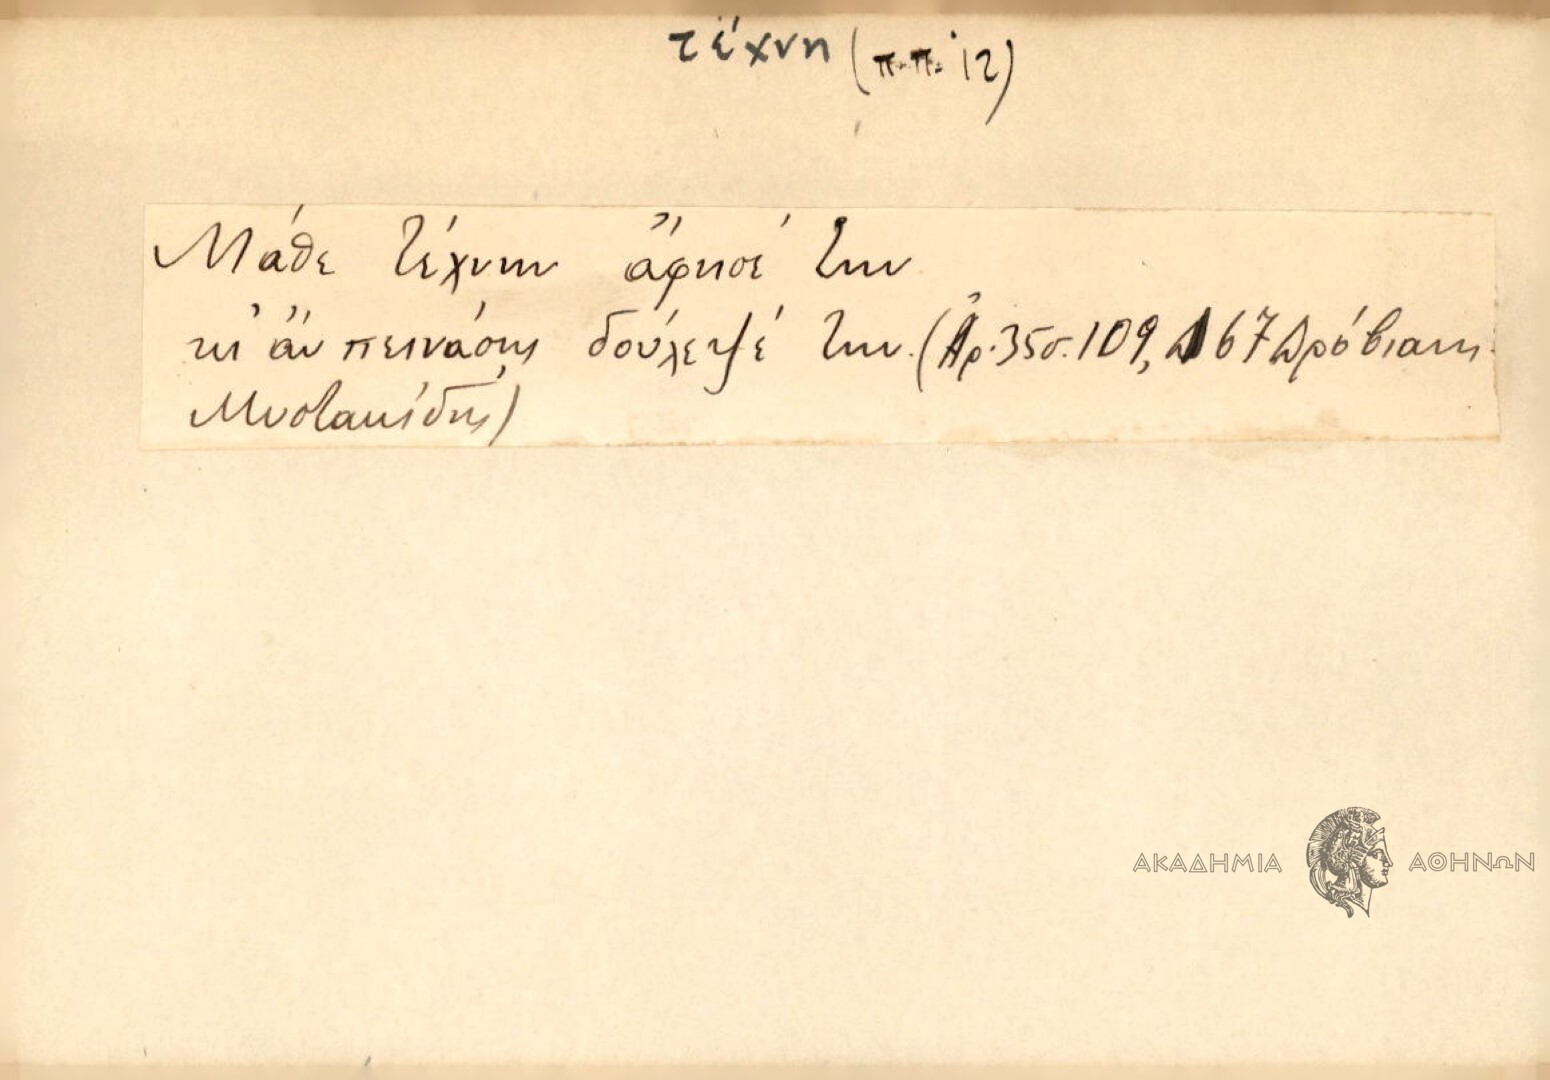 τέχνη (π.π. 12)
Μάθε τέχνην ἄφησέ την
κι' ἂν πεινάσῃς δούλεψέ την. (Ἀρ. 35 σ. 109, 167 Δρόβιανη.
Μυστακίδης)
ΑΚΑΔΗΜΙΑ ΑΘΗΝΩΝ